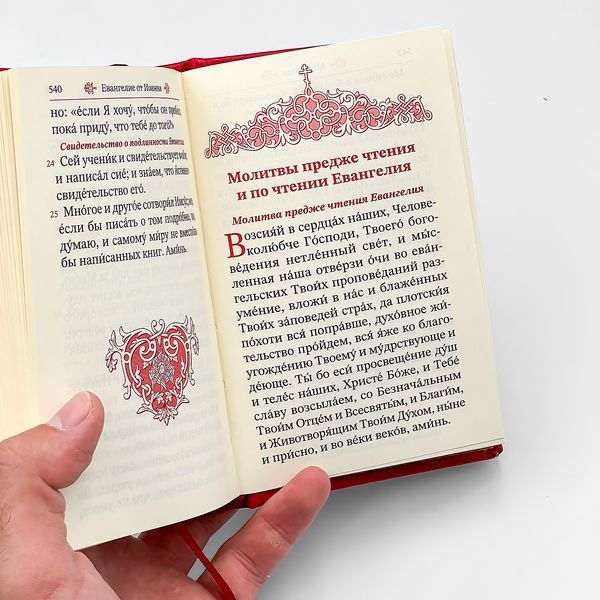 540 Евангелие от Иоанна
но: «е́сли Я хочу́, что́бы он пребы́л,
пока́ приду́, что тебе́ до того́?»
Свидетельство о подлинности Евангелия
24 Сей учени́к и свиде́тельствует о сём,
и написа́л сие́; и зна́ем, что и́стинно
свиде́тельство его́.
25 Мно́гое и друго́е сотвори́л Иису́с; но,
е́сли бы писа́ть о том подро́бно, то,
ду́маю, и самому́ ми́ру не вмести́ть
бы напи́санных книг. Ами́нь.
Молитвы предже чтения
и по чтении Евангелия
Молитва предже чтения Евангелия
Возсия́й в сердца́х на́ших, Челове-
колю́бче Го́споди, Твоего́ бого-
ве́дения нетле́нный свет, и мы́с-
ленная на́ша отве́рзи о́чи во ева́н-
гельских Твои́х пропове́даний раз-
уме́ние, вложи́ в нас и блаже́нных
Твои́х за́поведей страх, да плотски́я
по́хоти вся попра́вше, духо́вное жи́-
тельство про́йдем, вся я́же ко благо-
угожде́нию Твоему́ и му́дрствующе и
де́юще. Ты бо еси́ просвеще́ние душ
и теле́с на́ших, Христе́ Бо́же, и Тебе́
сла́ву возсыла́ем, со Безнача́льным
Твои́м Отце́м и Всесвяты́м, и Благи́м,
и Животворя́щим Твои́м Ду́хом, ны́не
и при́сно, и во ве́ки веко́в, ами́нь.